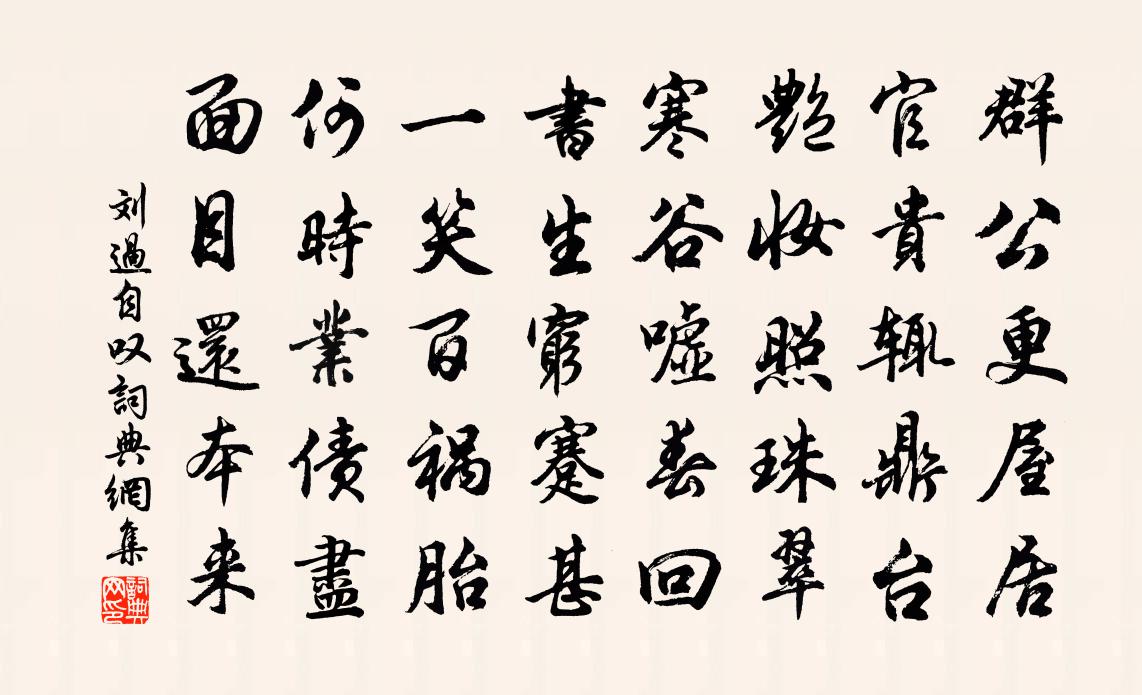 群公更屋居
官貴輙鼎台
艷妝照珠翠
寒谷噓春回
書生窮蹇甚
一笑百禍胎
何時業債盡
面目還本来
刘過自叹詞典網集
詞典网印